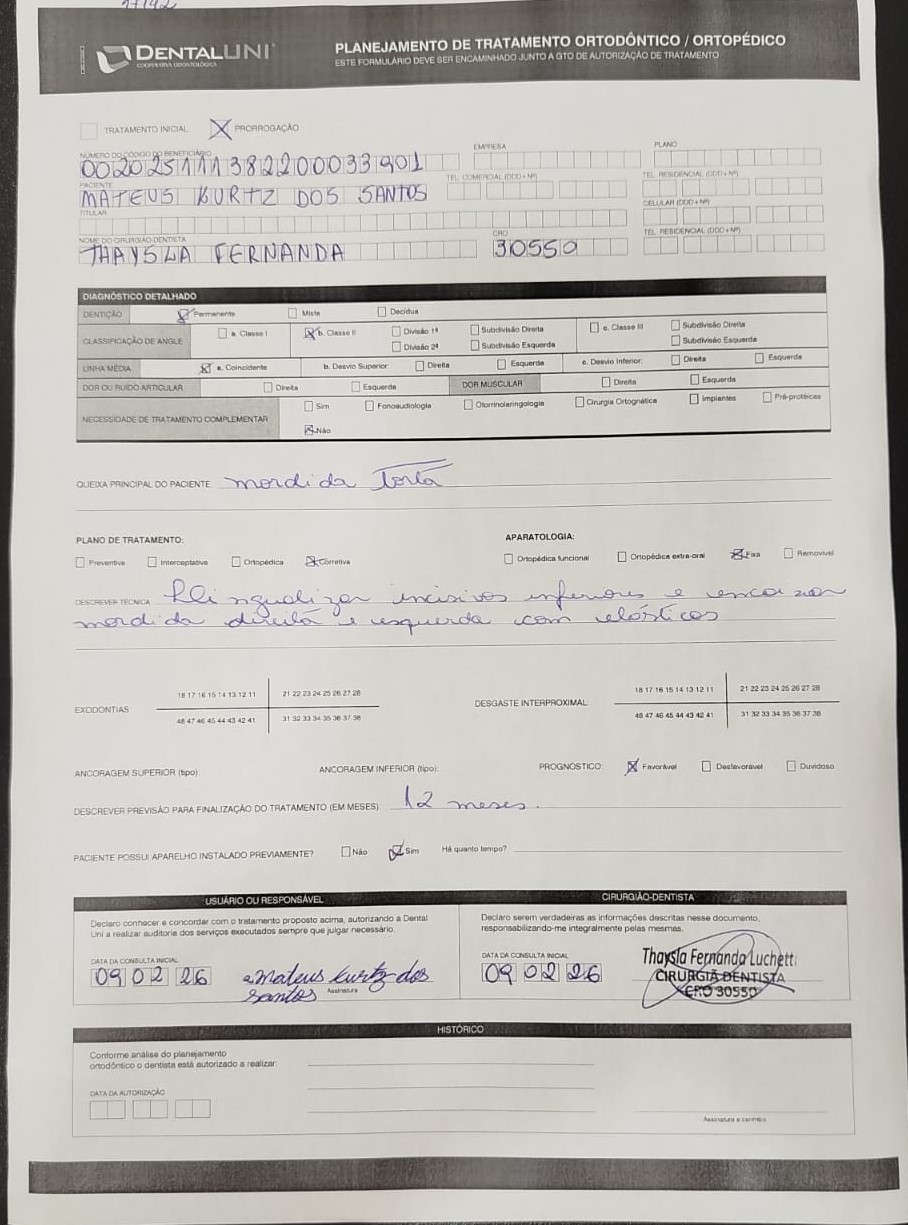 DENTALUNI
COOPERATIVA ODONTOLÓGICA
PLANEJAMENTO DE TRATAMENTO ORTODÔNTICO / ORTOPÉDICO
ESTE FORMULÁRIO DEVE SER ENCAMINHADO JUNTO A GTO DE AUTORIZAÇÃO DE TRATAMENTO
TRATAMENTO INICIAL X PRORROGAÇÃO
NÚMERO DO CÓDIGO DO BENEFICIÁRIO EMPRESA PLANO
00202511138220003390​1
PACIENTE TEL. COMERCIAL (DDD + Nº) TEL. RESIDENCIAL (DDD + Nº)
MATEUS KURTZ DOS SANTOS
TITULAR CELULAR (DDD + Nº)
NOME DO CIRURGIÃO-DENTISTA CRO TEL. RESIDENCIAL (DDD + Nº)
THAYSLA FERNANDA 30550
DIAGNÓSTICO DETALHADO
DENTIÇÃO X Permanente Mista Decídua
CLASSIFICAÇÃO DE ANGLE a. Classe I X b. Classe II Divisão 1ª Subdivisão Direita c. Classe III Subdivisão Direita
Divisão 2ª Subdivisão Esquerda Subdivisão Esquerda
LINHA MÉDIA X a. Coincidente b. Desvio Superior: Direita Esquerda c. Desvio Inferior: Direita Esquerda
DOR OU RUÍDO ARTICULAR Direita Esquerda DOR MUSCULAR Direita Esquerda
NECESSIDADE DE TRATAMENTO COMPLEMENTAR Sim Fonoaudiologia Otorrinolaringologia Cirurgia Ortognática Implantes Pré-protéticas
X Não
QUEIXA PRINCIPAL DO PACIENTE: mordida torta
PLANO DE TRATAMENTO: APARATOLOGIA:
Preventiva Interceptativa Ortopédica X Corretiva Ortopédica funcional Ortopédica extra-oral X Fixa Removível
DESCREVER TÉCNICA incisivos inferiores e
mordida direita e esquerda com elásticos
18 17 16 15 14 13 12 11 21 22 23 24 25 26 27 28 18 17 16 15 14 13 12 11 21 22 23 24 25 26 27 28
EXODONTIAS: DESGASTE INTERPROXIMAL:
48 47 46 45 44 43 42 41 31 32 33 34 35 36 37 38 48 47 46 45 44 43 42 41 31 32 33 34 35 36 37 38
ANCORAGEM SUPERIOR (tipo): ANCORAGEM INFERIOR (tipo): PROGNÓSTICO: X Favorável Desfavorável Duvidoso
DESCREVER PREVISÃO PARA FINALIZAÇÃO DO TRATAMENTO (EM MESES) 12 meses.
PACIENTE POSSUI APARELHO INSTALADO PREVIAMENTE? Não X Sim Há quanto tempo?
USUÁRIO OU RESPONSÁVEL
Declaro conhecer e concordar com o tratamento proposto acima, autorizando a Dental
Uni a realizar auditoria dos serviços executados sempre que julgar necessário.
DATA DA CONSULTA INICIAL
09 02 26 Mateus Kurtz dos
santos
Assinatura
CIRURGIÃO-DENTISTA
Declaro serem verdadeiras as informações descritas nesse documento,
responsabilizando-me integralmente pelas mesmas.
DATA DA CONSULTA INICIAL
09 02 26
Thaysla Fernanda Luchetti
CIRURGIÃ DENTISTA
CRO 30550
HISTÓRICO
Conforme análise do planejamento
ortodôntico o dentista está autorizado a realizar:
DATA DA AUTORIZAÇÃO
Assinatura e carimbo